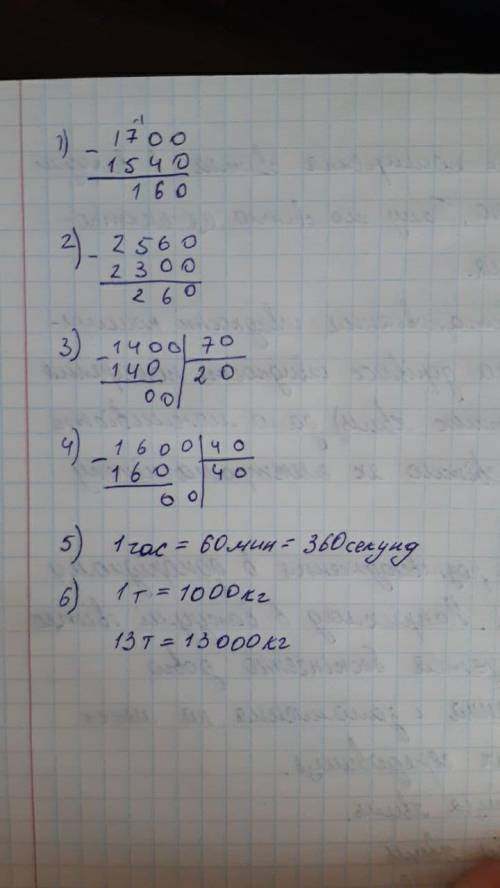 1) - 1700
1540
160
2) - 2560
2300
260
3) - 1400 70
140 20
00
4) - 1600 40
160 40
00
5) 1 час = 60 мин = 360 секунд
6) 1 т = 1000 кг
13 т = 13 000 кг